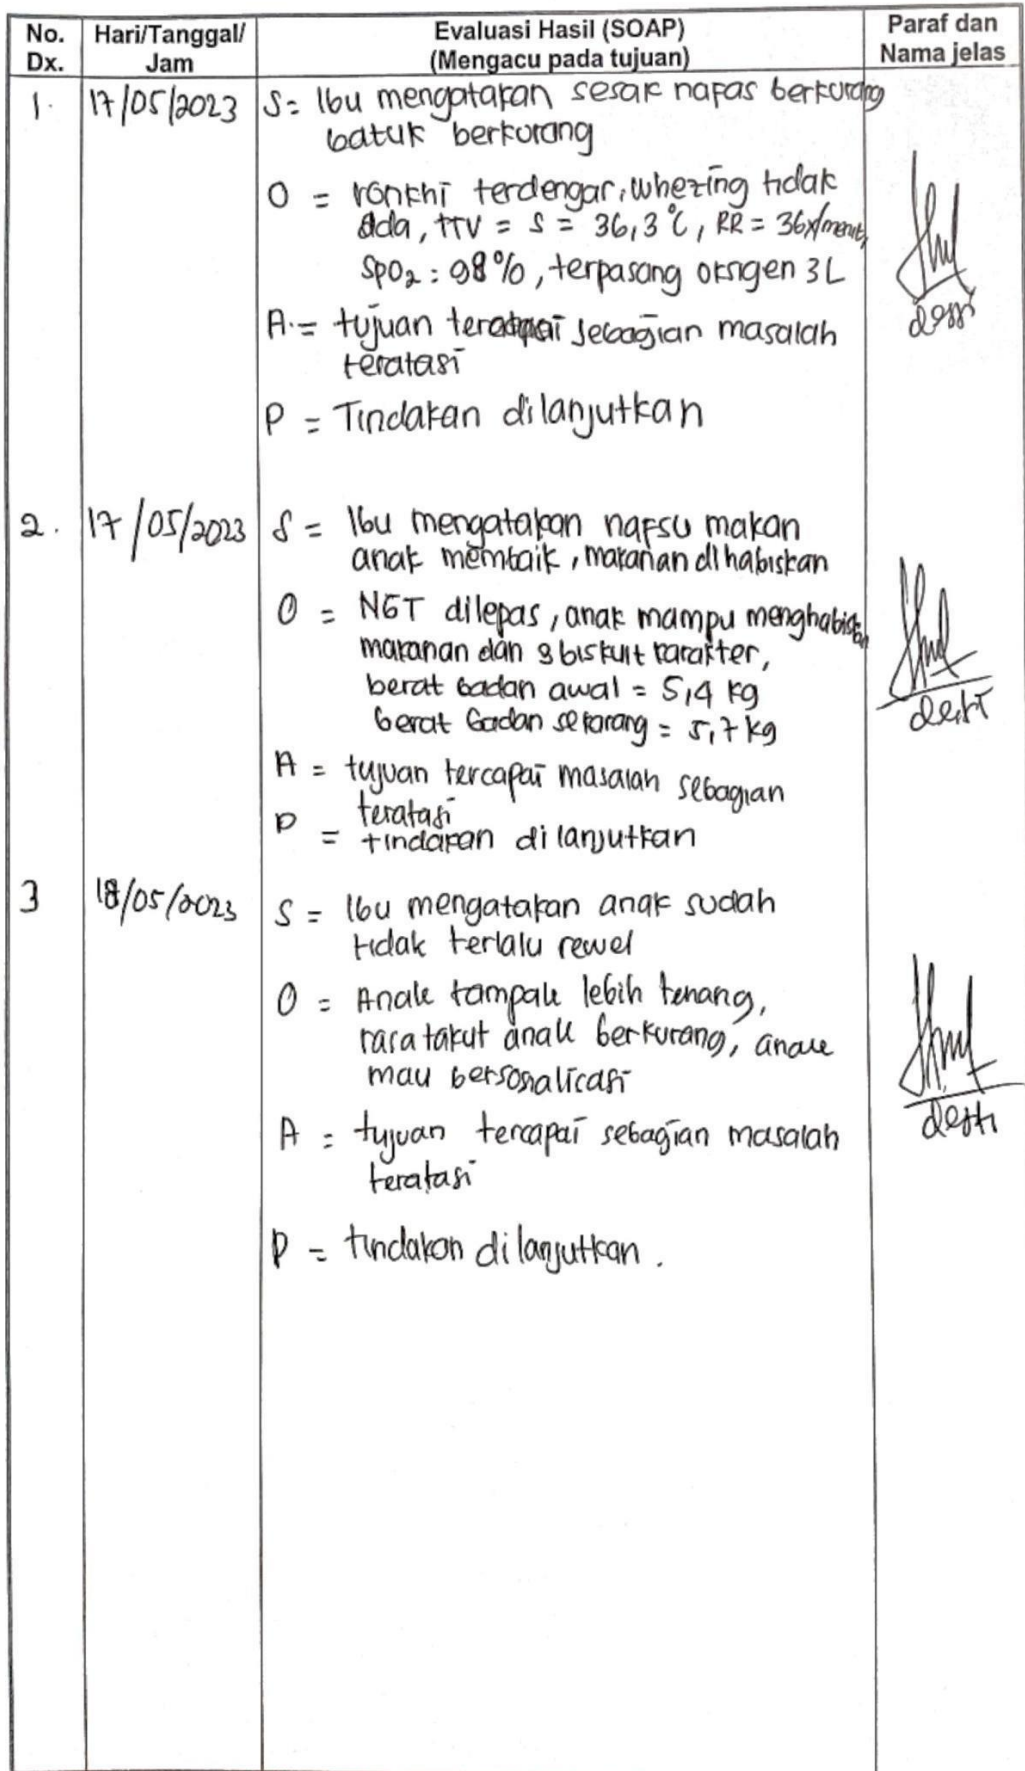 No. Dx. Hari/Tanggal/ Jam Evaluasi Hasil (SOAP) (Mengacu pada tujuan) Paraf dan Nama jelas
1. 17/05/2023 S = Ibu mengatakan sesak napas berkurang
batuk berkurang
O = ronkhi terdengar, whezing tidak
ada, TTV = S = 36,3 °C, RR = 36x/menit,
SpO2 : 98%, terpasang oksigen 3L
A = tujuan tercapai sebagian masalah
teratasi
P = Tindakan dilanjutkan
2. 17/05/2023 S = Ibu mengatakan napsu makan
anak membaik, makanan dihabiskan
O = NGT dilepas, anak mampu menghabiskan
makanan dan biskuit karakter,
berat badan awal = 5,4 kg
berat badan sekarang = 5,7 kg
A = tujuan tercapai masalah sebagian
teratasi
P = tindakan dilanjutkan
3 18/05/2023 S = Ibu mengatakan anak sudah
tidak terlalu rewel
O = Anak tampak lebih tenang,
rasa takut anak berkurang, anak
mau
A = tujuan tercapai sebagian masalah
teratasi
P = tindakan dilanjutkan.